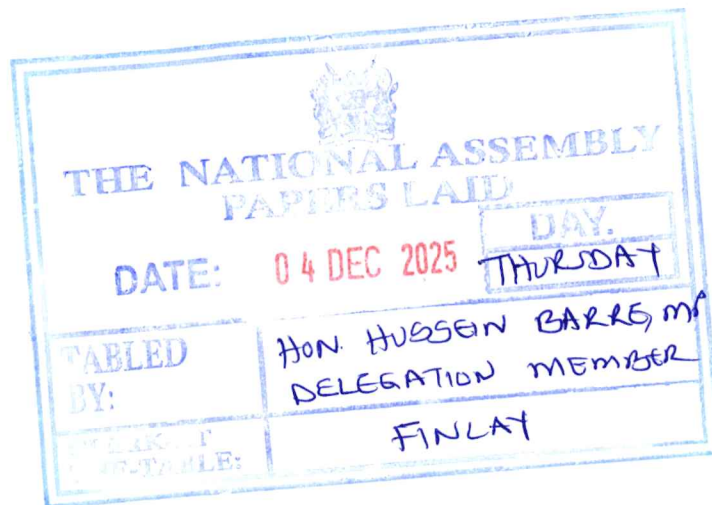 THE NATIONAL ASSEMBLY
PAPERS LAID
DAY.
DATE: 04 DEC 2025 THURSDAY
TABLED BY:
HON. HUSSEIN BARRE, MP
DELEGATION MEMBER
CLERK-AT THE-TABLE:
FINLAY